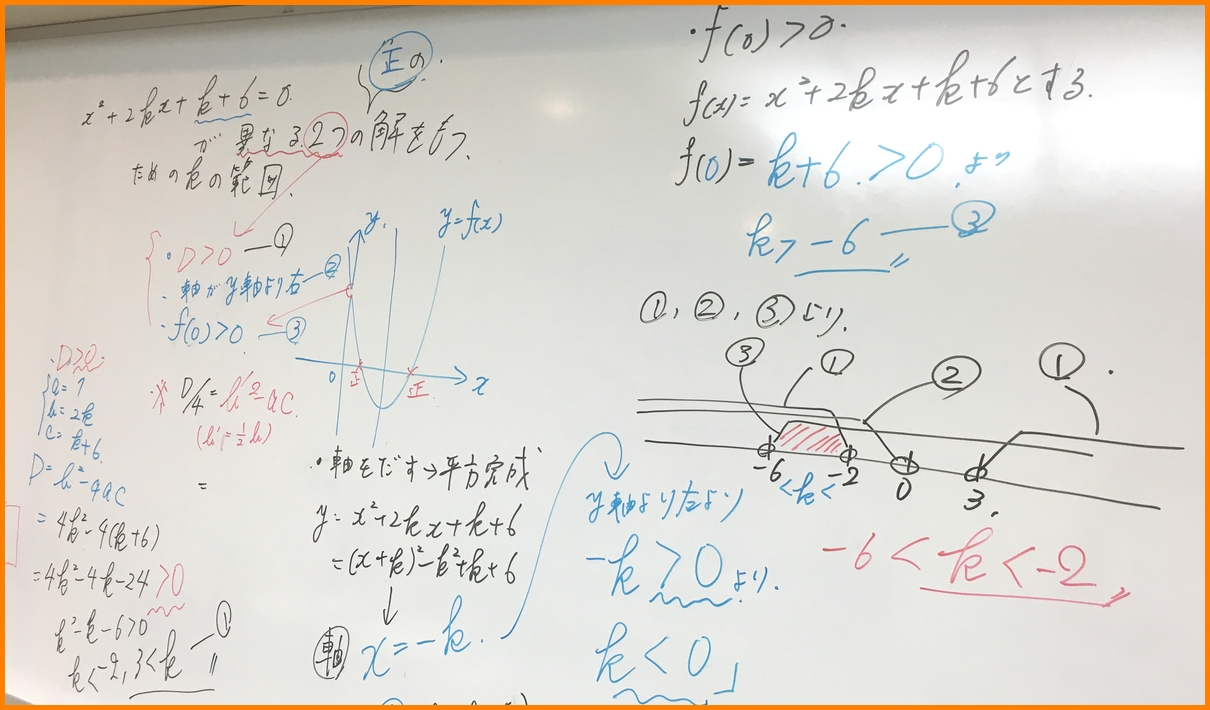 正の
x²+2kx+k+6=0
が異なる2つの解をもつ
ためのkの範囲.
・D>0 ―①
・軸がy軸より右―②
・f(0)>0 ―③
y
y=f(x)
0
正
正
x
・D>0
a=1
b=2k
c=k+6
D=b²-4ac
=4k²-4(k+6)
=4k²-4k-24>0
k²-k-6>0
k<-2, 3<k ―①
※ D/4=b'²-ac
(b'=½b)
=
・軸をだす→平方完成
y=x²+2kx+k+6
=(x+k)²-k²+k+6
軸 x=-k.
y軸より右より
-k>0より.
k<0
・f(0)>0.
f(x)=x²+2kx+k+6とする.
f(0)=k+6>0より
k>-6 ―③
①,②,③より.
③ ① ② ①
-6 <k< -2 0 3
-6<k<-2